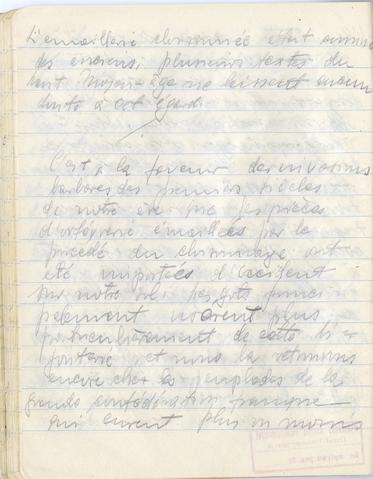 L'émaillerie cloisonnée était connue
des anciens, plusieurs textes du
haut Moyen-âge ne laissent aucun
doute à cet égard.
C'est à la faveur des invasions
barbares des premiers siècles
de notre ère que les pièces
d'orfèvrerie émaillées par le
procédé du cloisonnage ont
été importées d'Occident
sur notre sol. Les goths princi-
palement usèrent plus
particulièrement de cette bi-
jouterie et nous la retrouvons
encore chez les peuplades de la
grande confédération franque
qui eurent plus ou moins